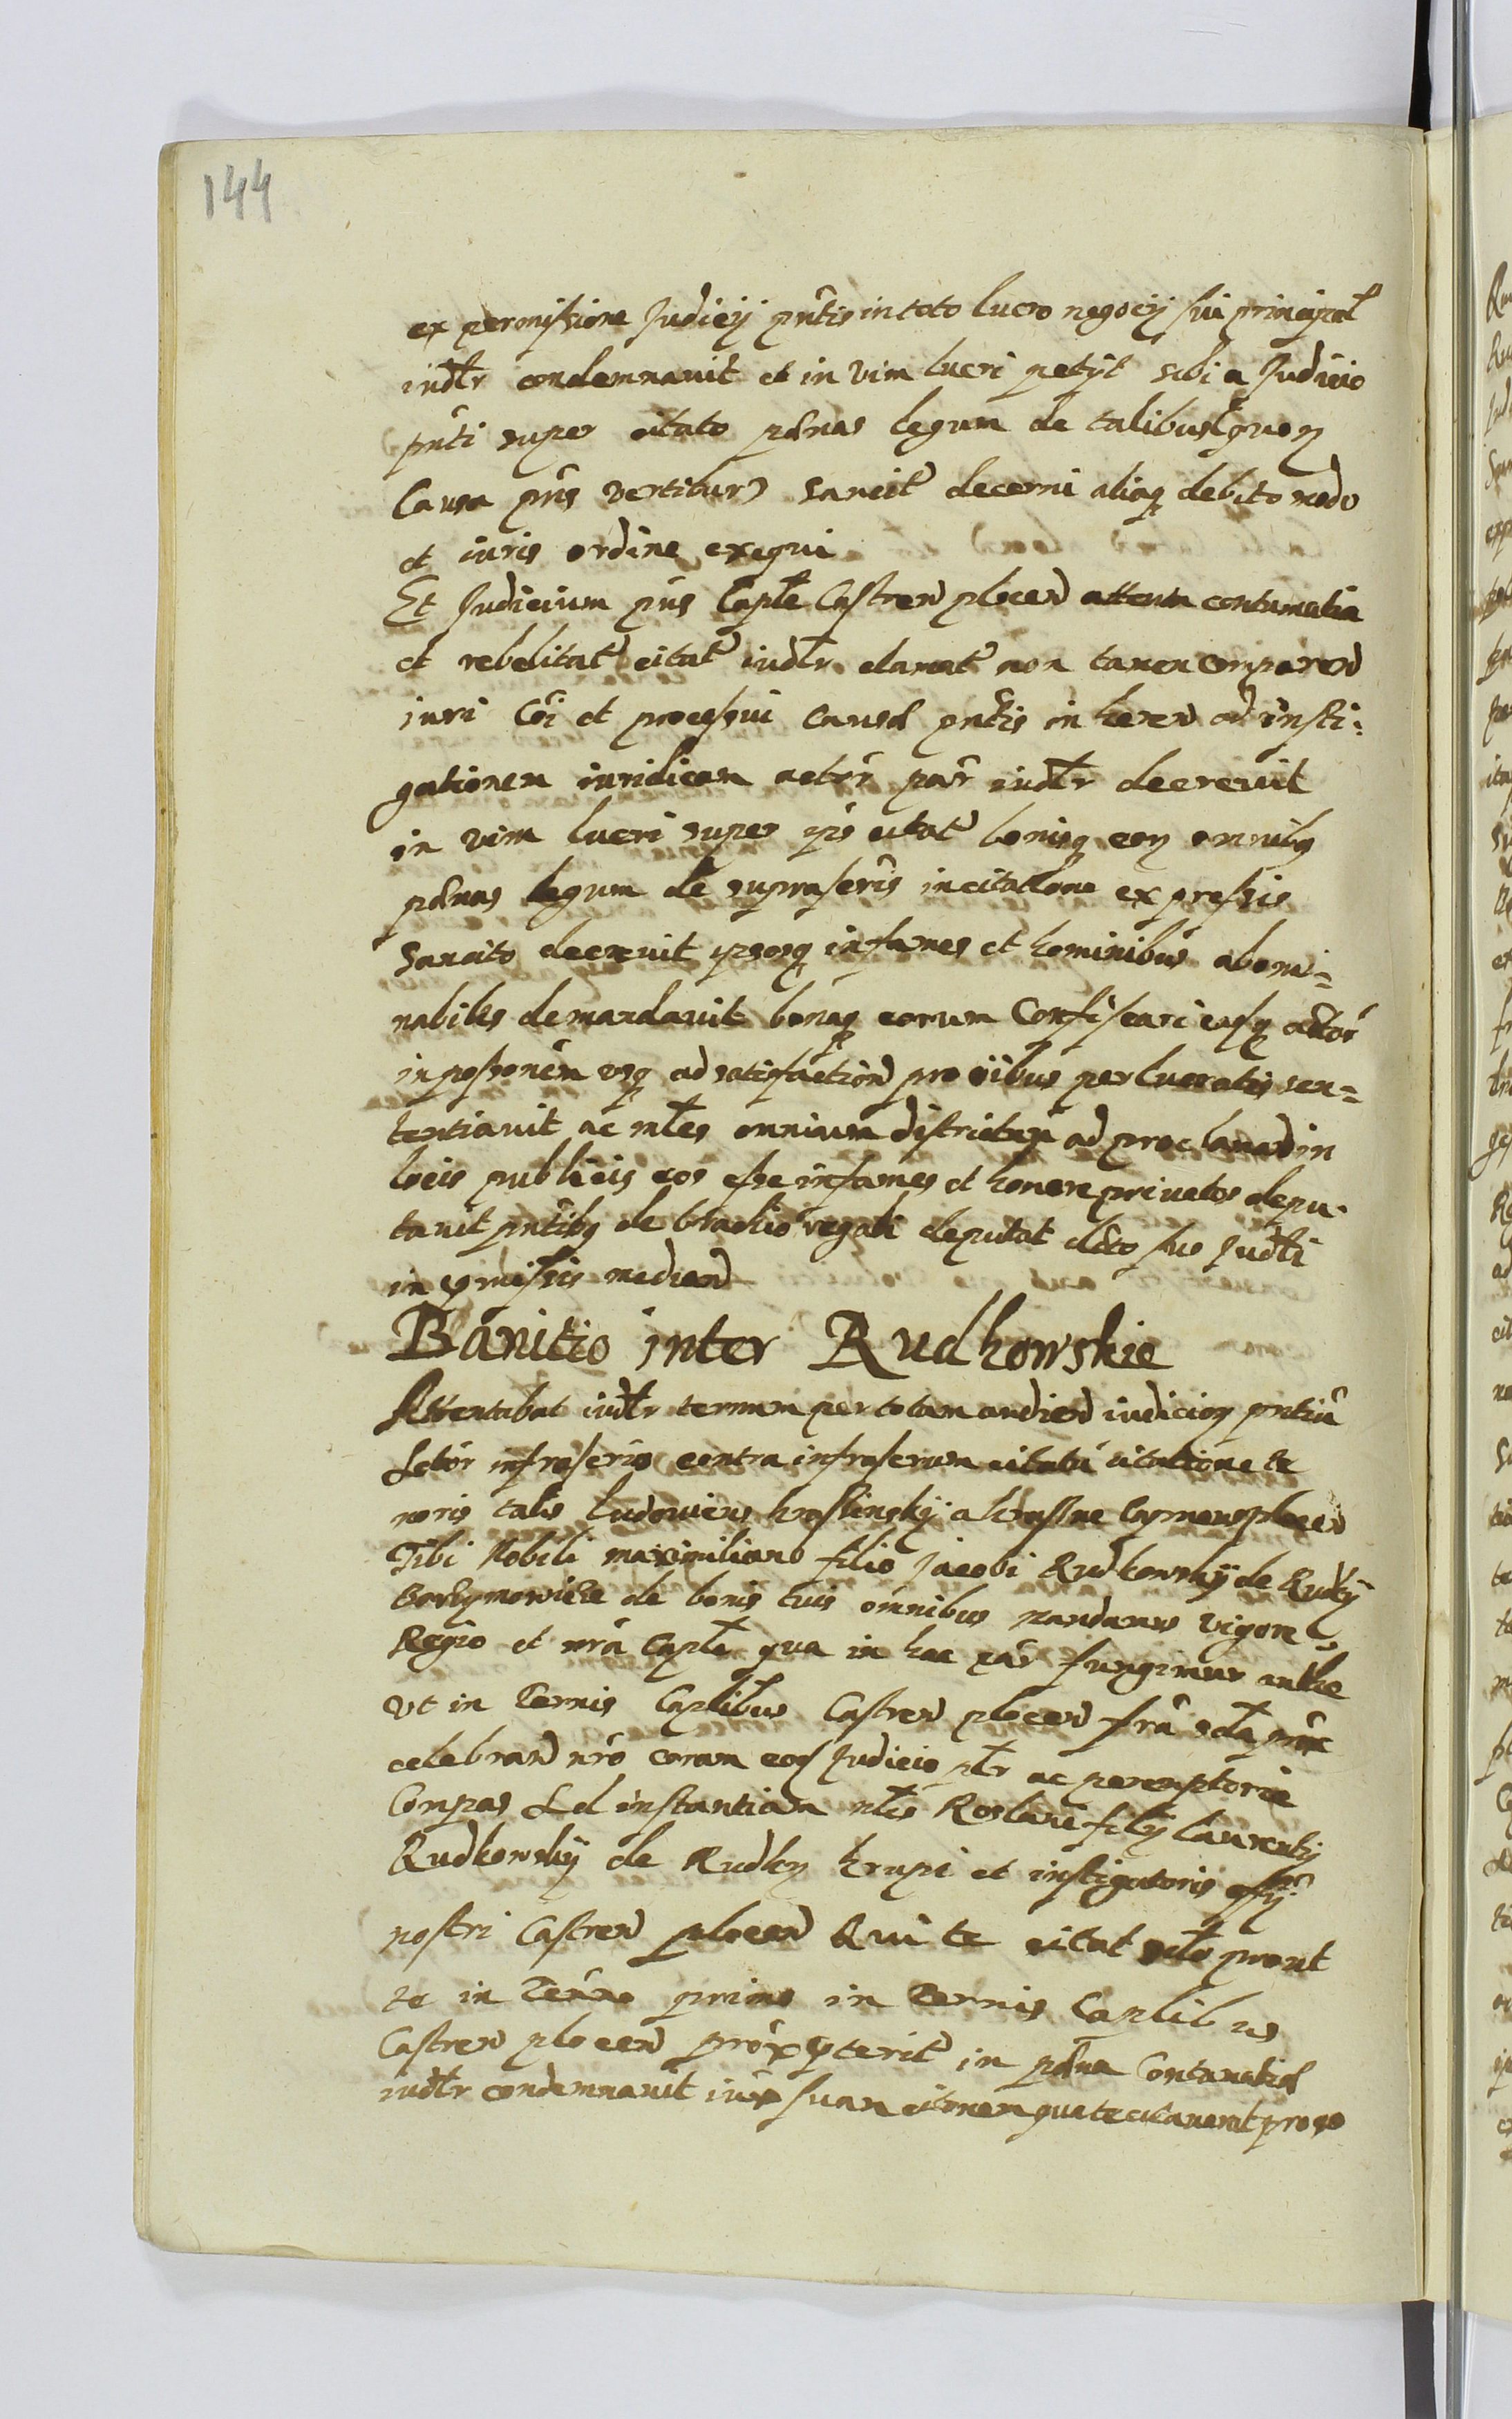 144
ex permissione Judicij pntis in toto lucro negocij sui principal
iudlr condemnauit et in vim lucri petijt sibi a Judicio
pnti super citato pænas legum de talibus quor
Causa pns vertitur) sancit decerni aliaq debito modo
et iuris ordine exequi
Et Judicium pns Caple Castren plocen attenta contumatia
et rebelitat citat iudlr clamat non tamen comparen
iuri Coi et processui causæ pntis inheren ad insti-
gationem iuridicam actor par iudlr decreuit
in vim lucri super ips citat bonisq eor omnibq
pænas legum de suprascris in citatione expressis
Sancito decreuit ipsosq infames et hominibus abomi=
nabiles demandauit bonaq eorum Confiscari easq actor
in possonem vsq ad satisfaction pro oibus perlucratis sen=
tentiauit ac mles omnium districtuu ad proclamand in
locis publicis eos esse infames et honore priuatos depu-
tauit pntibq de brachio regali deputat dto suo Judli
in pmissis median
Banitio inter Rudkowskie
Attentabat iudlr termum per totam audien iudicior pntiu
Actor infrascris contra infrascrum citatu citatione te
noris talis Ludouicus Krasinskij a Krasne Capneus plocen
Tibi Nobili maximiliano filio Jacobi Rudkowskij de Rudky
de bonis tuis omnibus mandamus vigore
Regio et nra Caple qua in hac par fungimur authe
vt in Termis Caplibus Castren plocen fra scda
celebrand nro coram eoq Judicio plr ac peremptorie
Compas Ad instantiam nlis Roslani filij Laurentij
Rudkowskij de Rudky Krupi et instigatoris offij
nostri Castren plocen Qui te citat prout
te in Termo primo in Termis Caplibus
Castren plocen prox pterit in pæna Contumatiæ
iudlr condemnauit iux suam citonem qua te citauerat pro eo